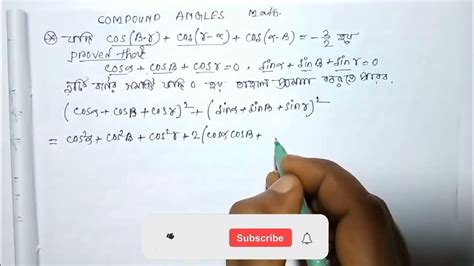 COMPOUND ANGLES Math.
যদি cos(β-γ) + cos(γ-α) + cos(α-β) = -3/2 হয়
proven that
cosα + cosβ + cosγ = 0, sinα + sinβ + sinγ = 0
দুটি যদি 0 হয় তাহলে
(cosα + cosβ + cosγ)² + (sinα + sinβ + sinγ)²
= cos²α + cos²β + cos²γ + 2(cosα cosβ +
Subscribe